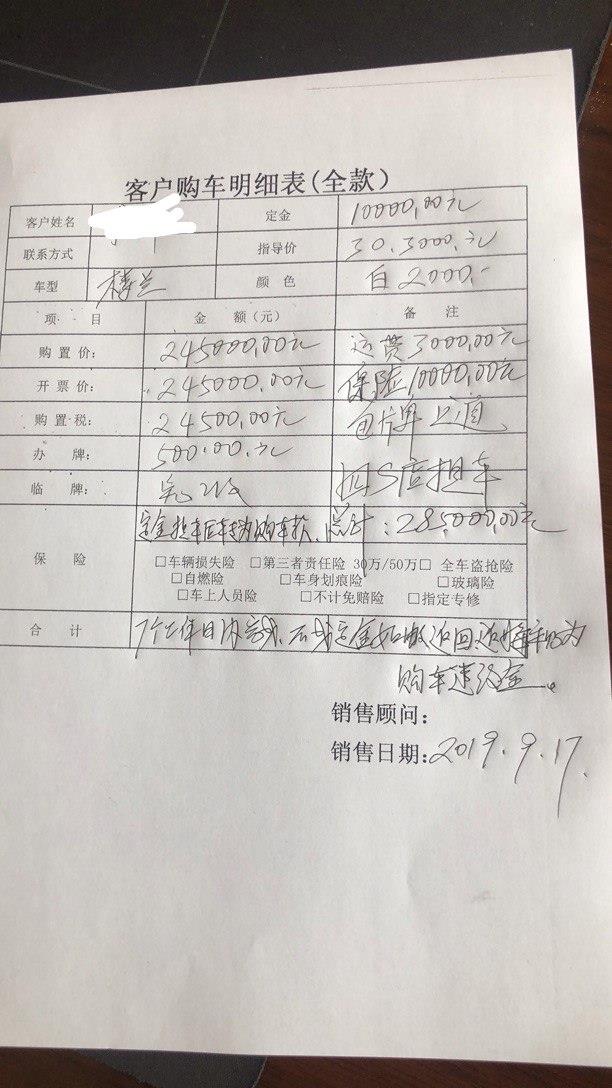 客户购车明细表(全款)
客户姓名 定金 10000,00元
联系方式 指导价 30.3000,元
车型 楼兰 颜色 白 2000,-
项 目 金 额(元) 备 注
购置价: 245000,00元 运费3000,00元
开票价: 245000.00元 保险10000,00元
购置税: 24500,00元 包牌上道、
办 牌: 500.00.元
临牌: 四S店提车
定金提车后转为购车款、总计:285,000,00元
保 险 □车辆损失险 □第三者责任险 30万/50万□ 全车盗抢险
□自燃险 □车身划痕险 □玻璃险
□车上人员险 □不计免赔险 □指定专修
合 计 7个工作日内 定金如数退回
购车违约金。
销售顾问:
销售日期:2019.9.17.